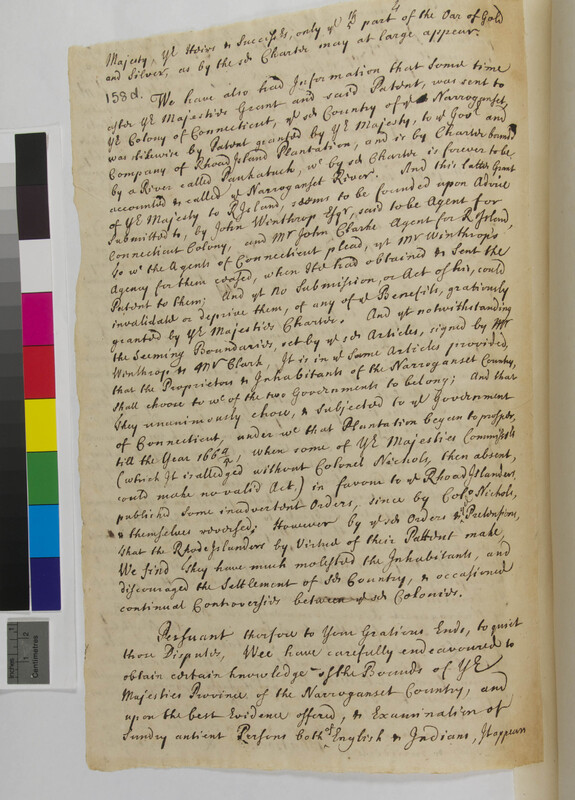 Majesty, yE Heirs & Successrs, only ye 5th part of the Oar of Gold
and Silver, as by the sd Charter may at large appear.
158d. We have also had Information that some time
after yE Majesties Grant and said Patent, was sent to
yE Colony of Connecticut, ye sd Country of ye Narroganset,
was likewise by Patent granted by yE Majesty, to ye Govr and
Company of Rhoad Island Plantation, and is by Charter bound
by a River called Paukatuck, wc by sd Charter is forever to be
accounted & called ye Narroganset River. And this latter Grant
of yE Majesty to R.Island, seems to be founded upon Advice
Submitted to, by John Winthrop Esqr, said to be Agent for
Connecticut Colony, and Mr John Clarke Agent for R.Island,
to wc the Agents of Connecticut plead, yt Mr Winthrops
Agency for them ceased, when He had obtained & Sent the
Patent to them; And yt no Submission, or Act of his, could
invalidate or deprive them, of any of ye Benefits, gratiously
granted by yE Majesties Charter. And yt notwithstanding
the Seeming Boundaries, set by ye sd Articles, signed by Mr
Winthrop & Mr Clark, It is in ye Same Articles provided,
that the Proprietors & Inhabitants of the Narroganset Country,
shall choose to wc of the two Governments to belong; And that
they unanimously chose, & subjected to ye Government
of Connecticut, under wc that Plantation began to prosper,
till the Year 1664, when some of yE Majesties Commissrs
(which It is alledged without Colonel Nichols, then absent,
could make no valid Act.) in favour to ye Rhoad Islanders
publishd Some inadvertent Orders, since by Colo Nichols,
& themselves reversed; However by ye sd Orders & Pretensions,
that the Rhode Islanders by Virtue of their Pattent make,
We find they have much molested the Inhabitants, and
discouraged the Settlement of sd Country, & occasioned
continual Controversies between ye sd Colonies.
Persuant therfore to Your Gratious Ends, to quiet
those Disputes, Wee have carefully endeavoured to
obtain certain knowledge of the Bounds of yE
Majesties Province of the Narroganset Country, and
upon the best Evidence offered, & Examination of
Sundry antient Persons both English & Indians, It appears
Inches
Centimetres